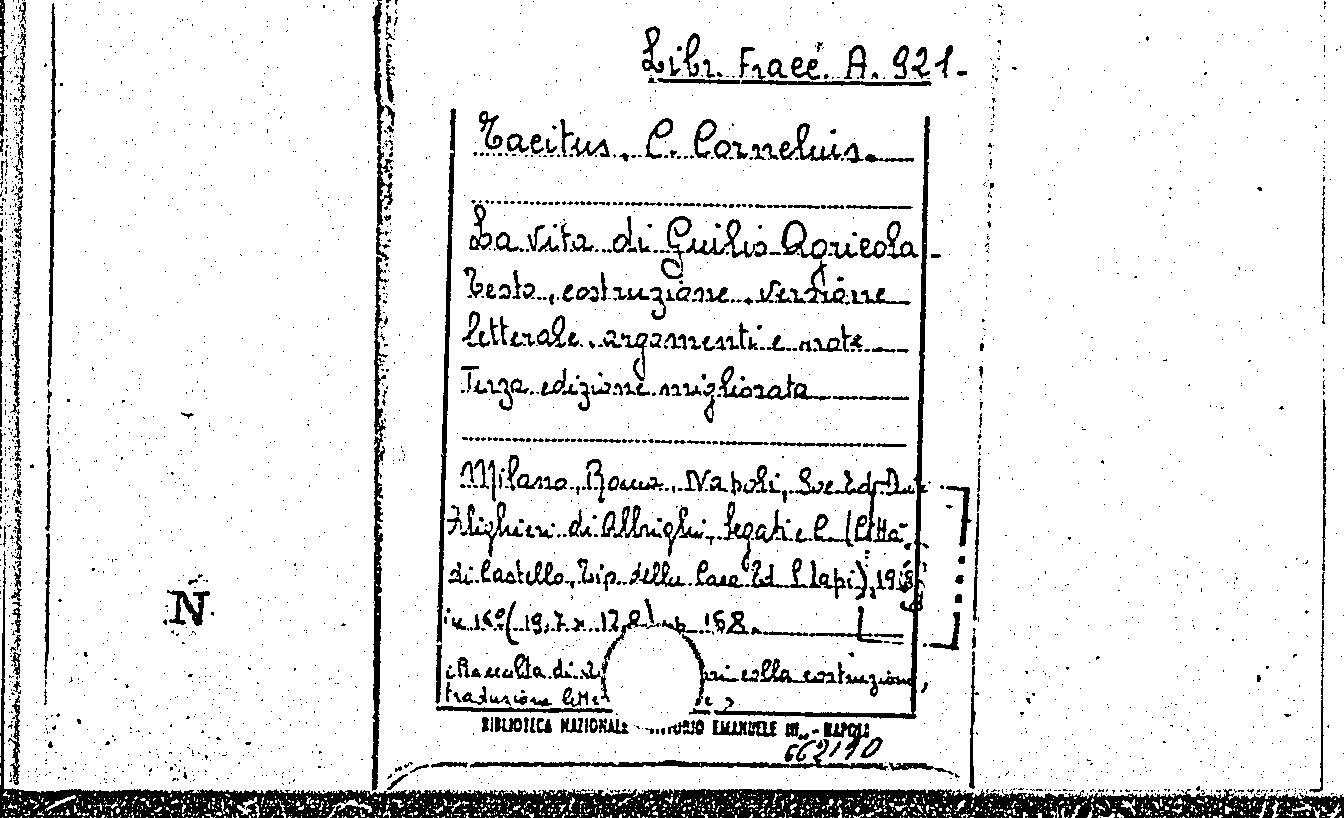 Libr. Fracc. A. 921.
Tacitus, C. Corneluis.
La vita di Guilio Agricola.
Testo, costruzione, versione
letterale, argomenti e note
Terza edizione migliorata
Milano, Roma, Napoli, Soc. Ed. Dante
Alighieri di Albrighi, Segati e C. (Città
di Castello, Tip. della Casa Ed. S. Lapi), 19
in 16º (19,7 x 12,8) pp 168.
(Raccolta di colla costruzione,
traduzione
BIBLIOTECA NAZIONALE VITTORIO EMANUELE III - NAPOLI
662110
N